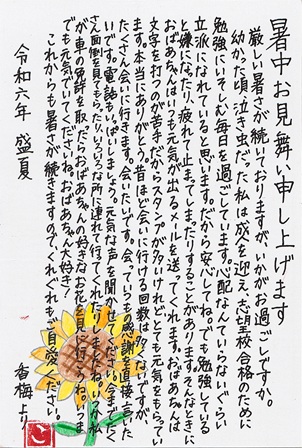 暑中お見舞い申し上げます
厳しい暑さが続いておりますが、いかがお過ごしですか。
幼かった頃泣き虫だった私は成人を迎え、志望校合格のために
勉強にいそしむ毎日を過ごしています。心配なんていらないぐらい
立派になれていると思います。だから安心してね。でも勉強している
と嫌になったり、疲れて止まってしまったりすることがあります。そんなときに
おばあちゃんはいつも元気が出るメールを送ってくれます。おばあちゃんは
文字を打つのが苦手だからスタンプが多いけれど、とても元気をもらってい
ます。本当にありがとう。昔ほど会いに行ける回数は多くないですが、
たくさん会いに行きます。会いたいです。会っていつもの感謝を直接言いた
いです。電話もいっぱいしましょう。元気な声を聞かせてください。今までたく
さん面倒を見てもらったり、いろいろな所に連れて行ってくれ いつか私
が車の免許を取ったらおばあちゃんの好きなお花を見に行こうね。いつま
でも元気でいてくださいね。おばあちゃん大好き！
これからも暑さが続きますので、くれぐれもご自愛ください。
令和六年 盛夏
香梅より